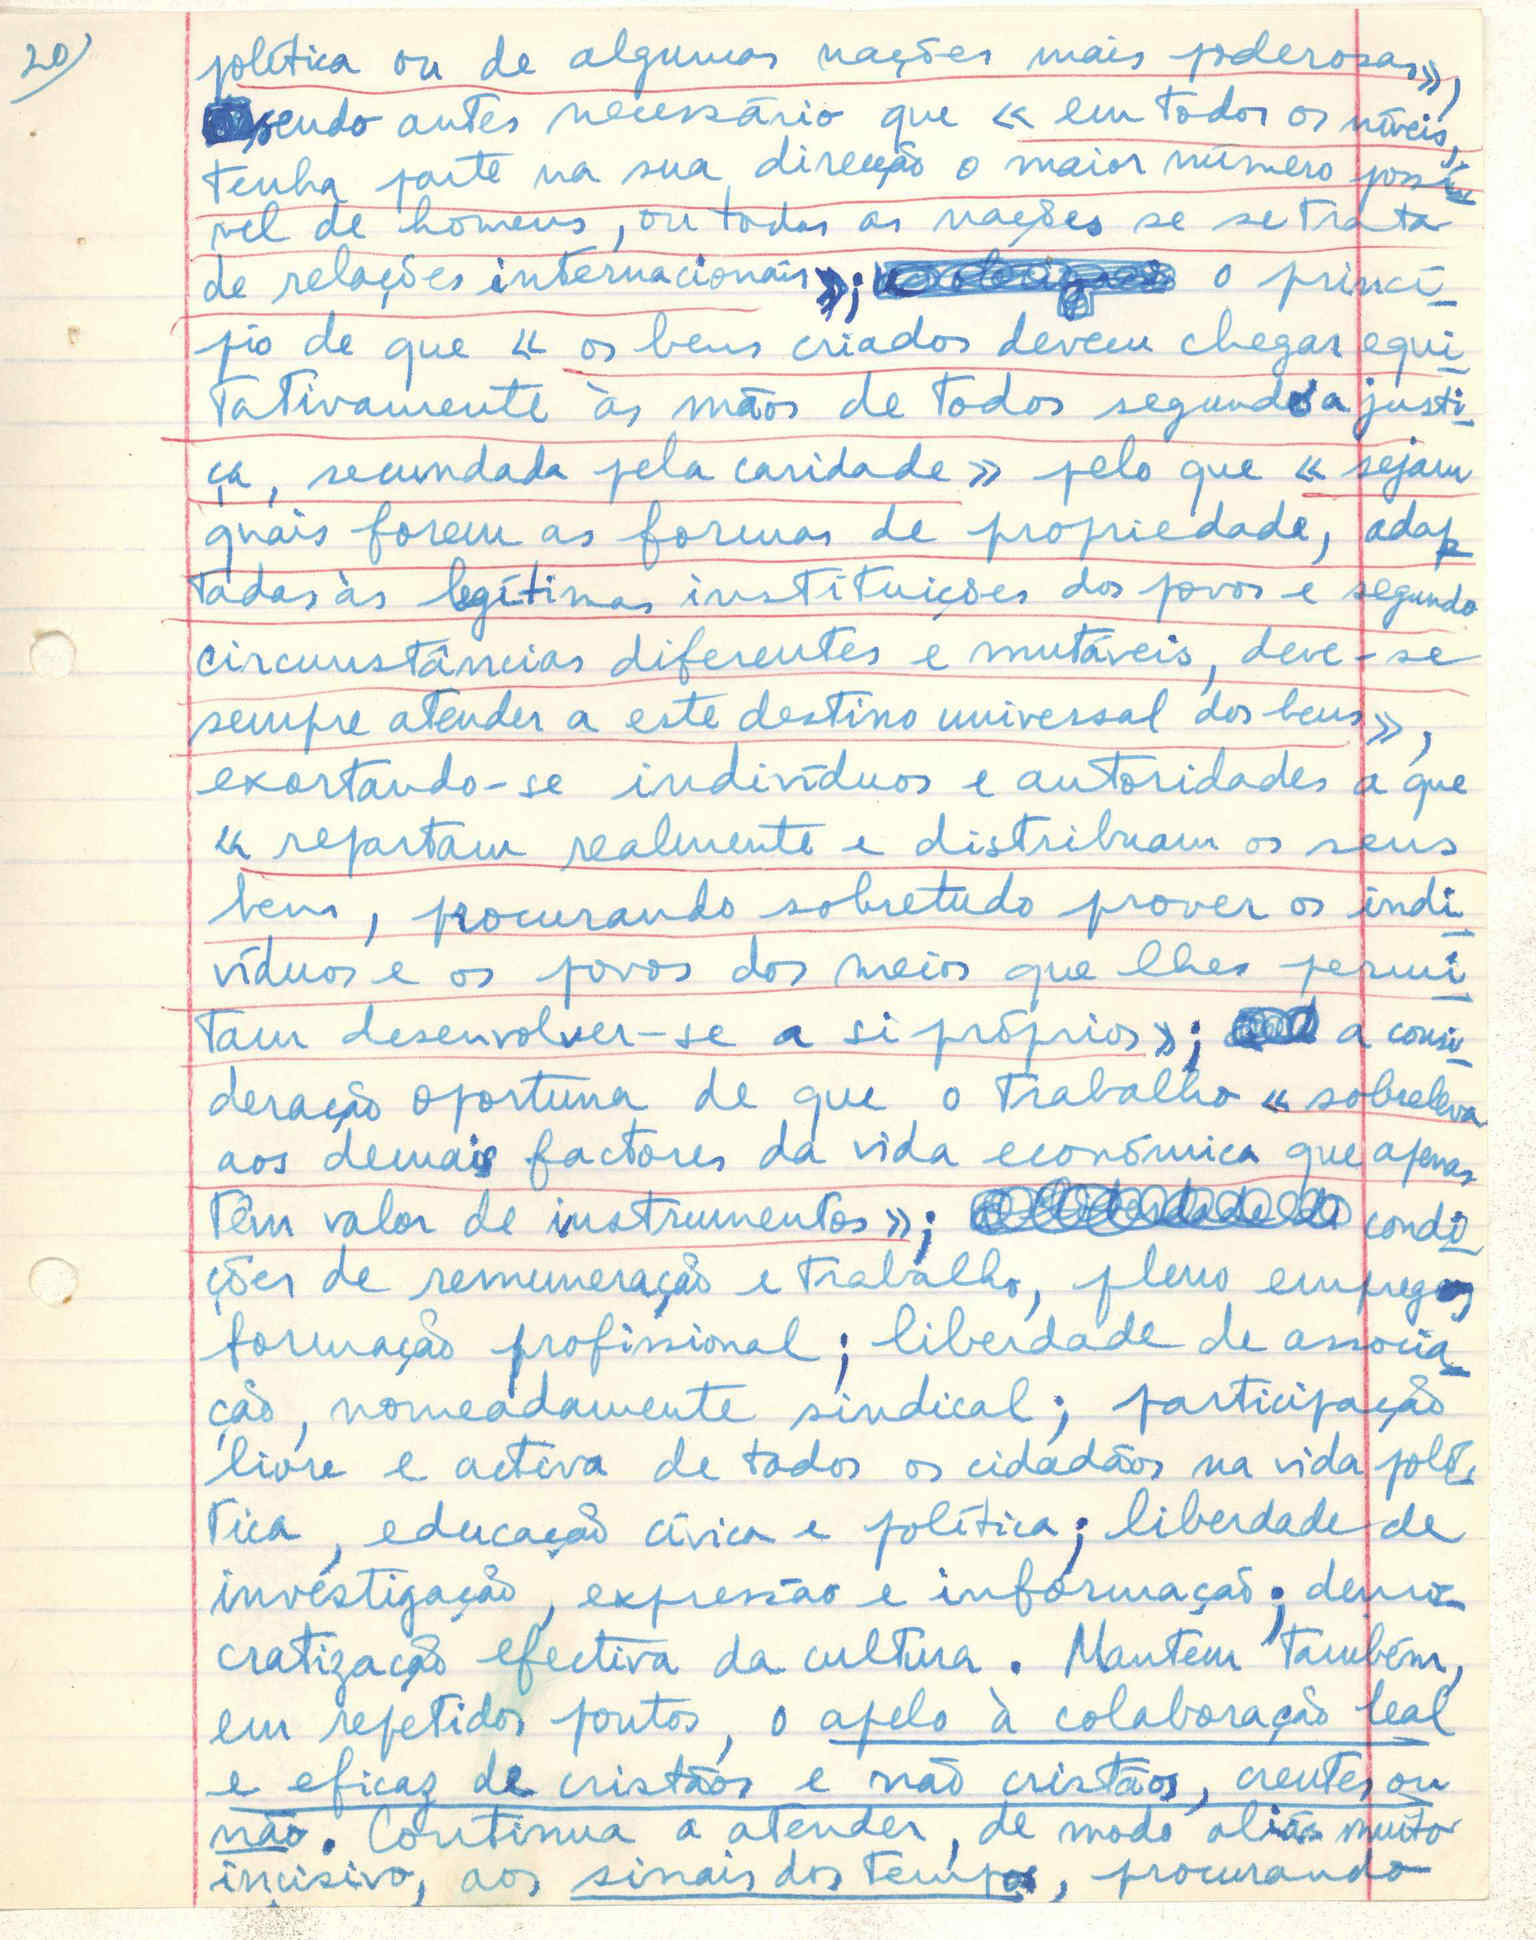 20)
política ou de algumas nações mais poderosas»,
sendo antes necessário que « em todos os níveis,
tenha parte na sua direcção o maior número possí
vel de homens, ou todas as nações se se trata
de relações internacionais»; o princí
pio de que « os bens criados devem chegar equi
tativamente às mãos de todos segundo a justi
ça, secundada pela caridade» pelo que « sejam
quais forem as formas de propriedade, adap
tadas às legítimas instituições dos povos e segundo
circunstâncias diferentes e mutáveis, deve-se
sempre atender a este destino universal dos bens»,
exortando-se indivíduos e autoridades a que
« repartam realmente e distribuam os seus
bens, procurando sobretudo prover os indi
víduos e os povos dos meios que lhes permi
tam desenvolver-se a si próprios»; a consi
deração oportuna de que o trabalho « sobreleva
aos demais factores da vida económica que apenas
têm valor de instrumentos»; condi
ções de remuneração e trabalho, pleno emprego,
formação profissional; liberdade de associa
ção, nomeadamente sindical; participação
livre e activa de todos os cidadãos na vida polí
tica, educação cívica e política; liberdade de
investigação, expressão e informação; demo
cratização efectiva da cultura. Mantem também,
em repetidos pontos, o apelo à colaboração leal
e eficaz de cristãos e não cristãos, crentes ou
não. Continua a atender, de modo aliás muito
incisivo, aos sinais dos tempos, procurando